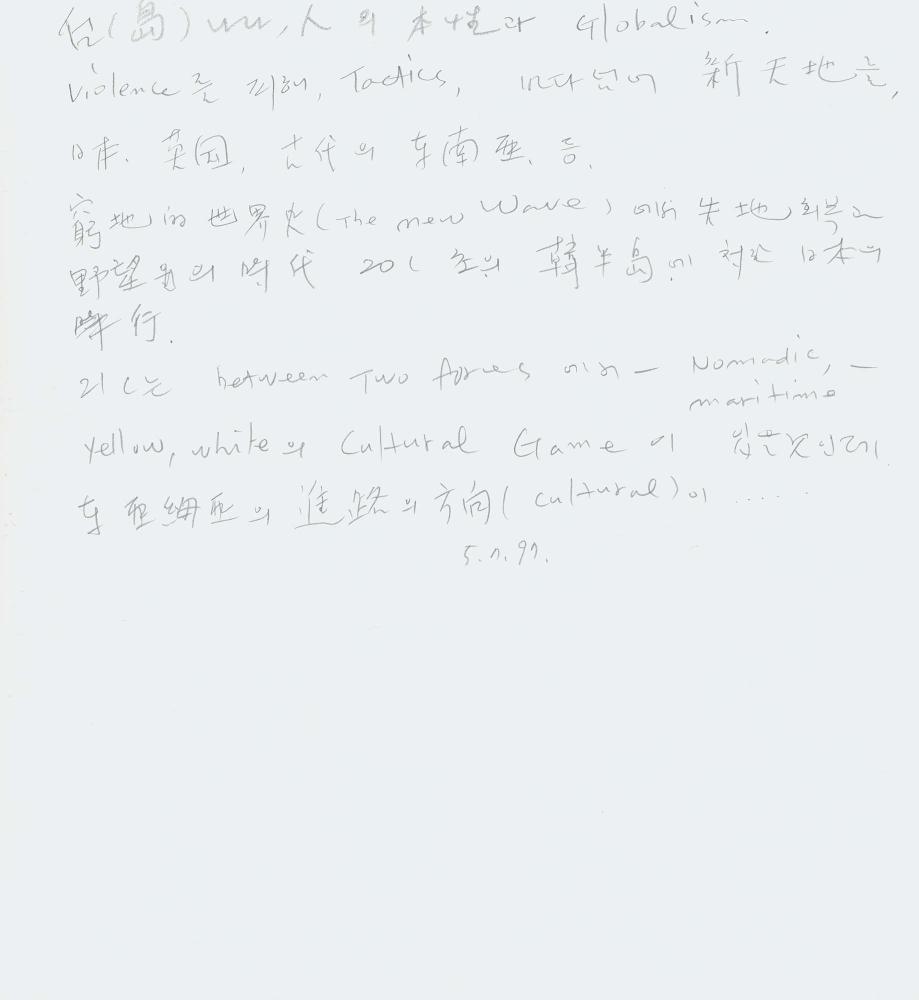 섬(島) 人의 本性과 Globalism.
Violence를 피해, Tactics, 바다넘어 新天地를,
日本. 英国, 古代의 东南亜. 등.
窮地的 世界史(The new Wave)에서 失地회복과
野望의 時代 20C 초의 韓半島에 対한 日本의
行.
21C는 between Two forces에서 — Nomadic, —
maritime
Yellow, white의 Cultural Game이 있을것인데
东亜細亜의 進路의 方向(cultural)이 .....
5.7.97.